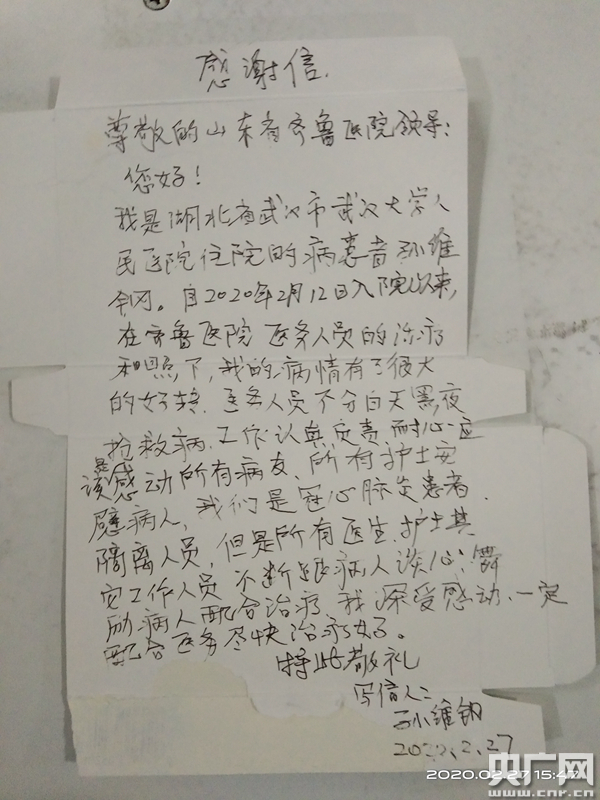 感谢信.
尊敬的山东省齐鲁医院领导:
您好!
我是湖北省武汉市武汉大学人
民医院住院的病患者孙维
钢。自2020年2月12日入院以来,
在齐鲁医院医务人员的治疗
和照下,我的病情有了很大
的好转.医务人员不分白天黑夜
抢救病,工作认真负责,耐心.应
该感动所有病友.所有护士安
慰病人,我们是冠心肺炎患者.
隔离人员,但是所有医生.护士其
它工作人员不断跟病人谈心.
励病人配合治疗.我深受感动.一定
配合医务尽快治疗好。
特此敬礼
写信人:
孙维钢
2020.2.27
2020.02.27 15:47
央广网
www.cnr.cn